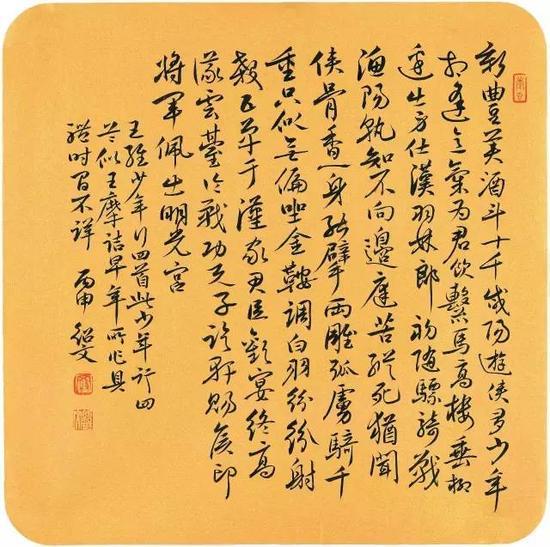 新豐美酒斗十千咸陽遊俠多少年
相逢意氣為君飲繫馬高樓垂柳
邊出身仕漢羽林郎初隨驃騎戰
漁陽孰知不向邊庭苦縱死猶聞
俠骨香一身能擘兩雕弧虜騎千
重只似無偏坐金鞍調白羽紛紛射
殺五單于漢家君臣歡宴終高
議雲臺論戰功天子臨軒賜侯印
將軍佩出明光宮
王維少年行四首此少年行四
首似王摩詰早年所作具
體時間不詳 紹文